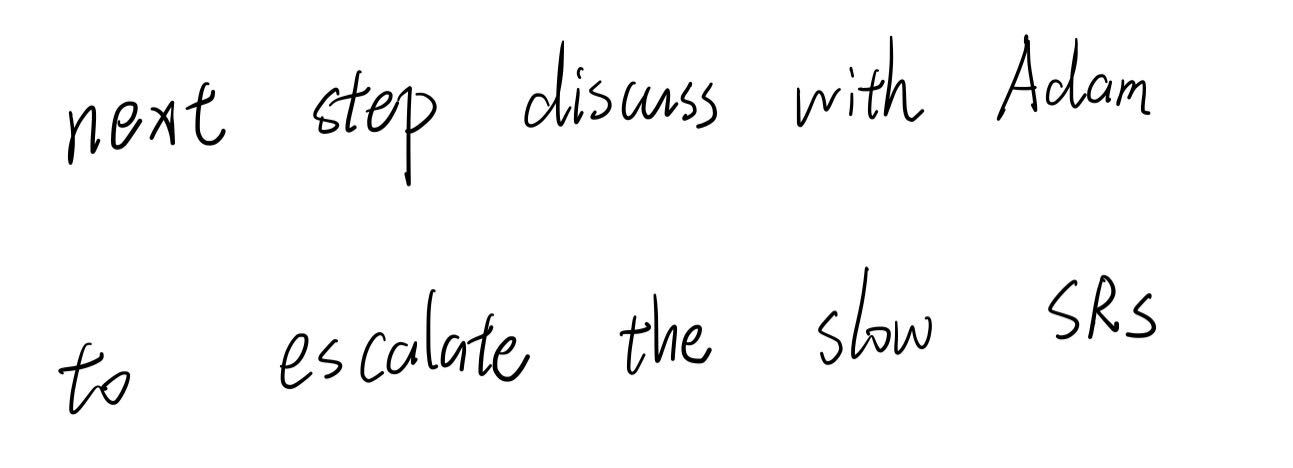 next step discuss with Adam
to escalate the slow SRs